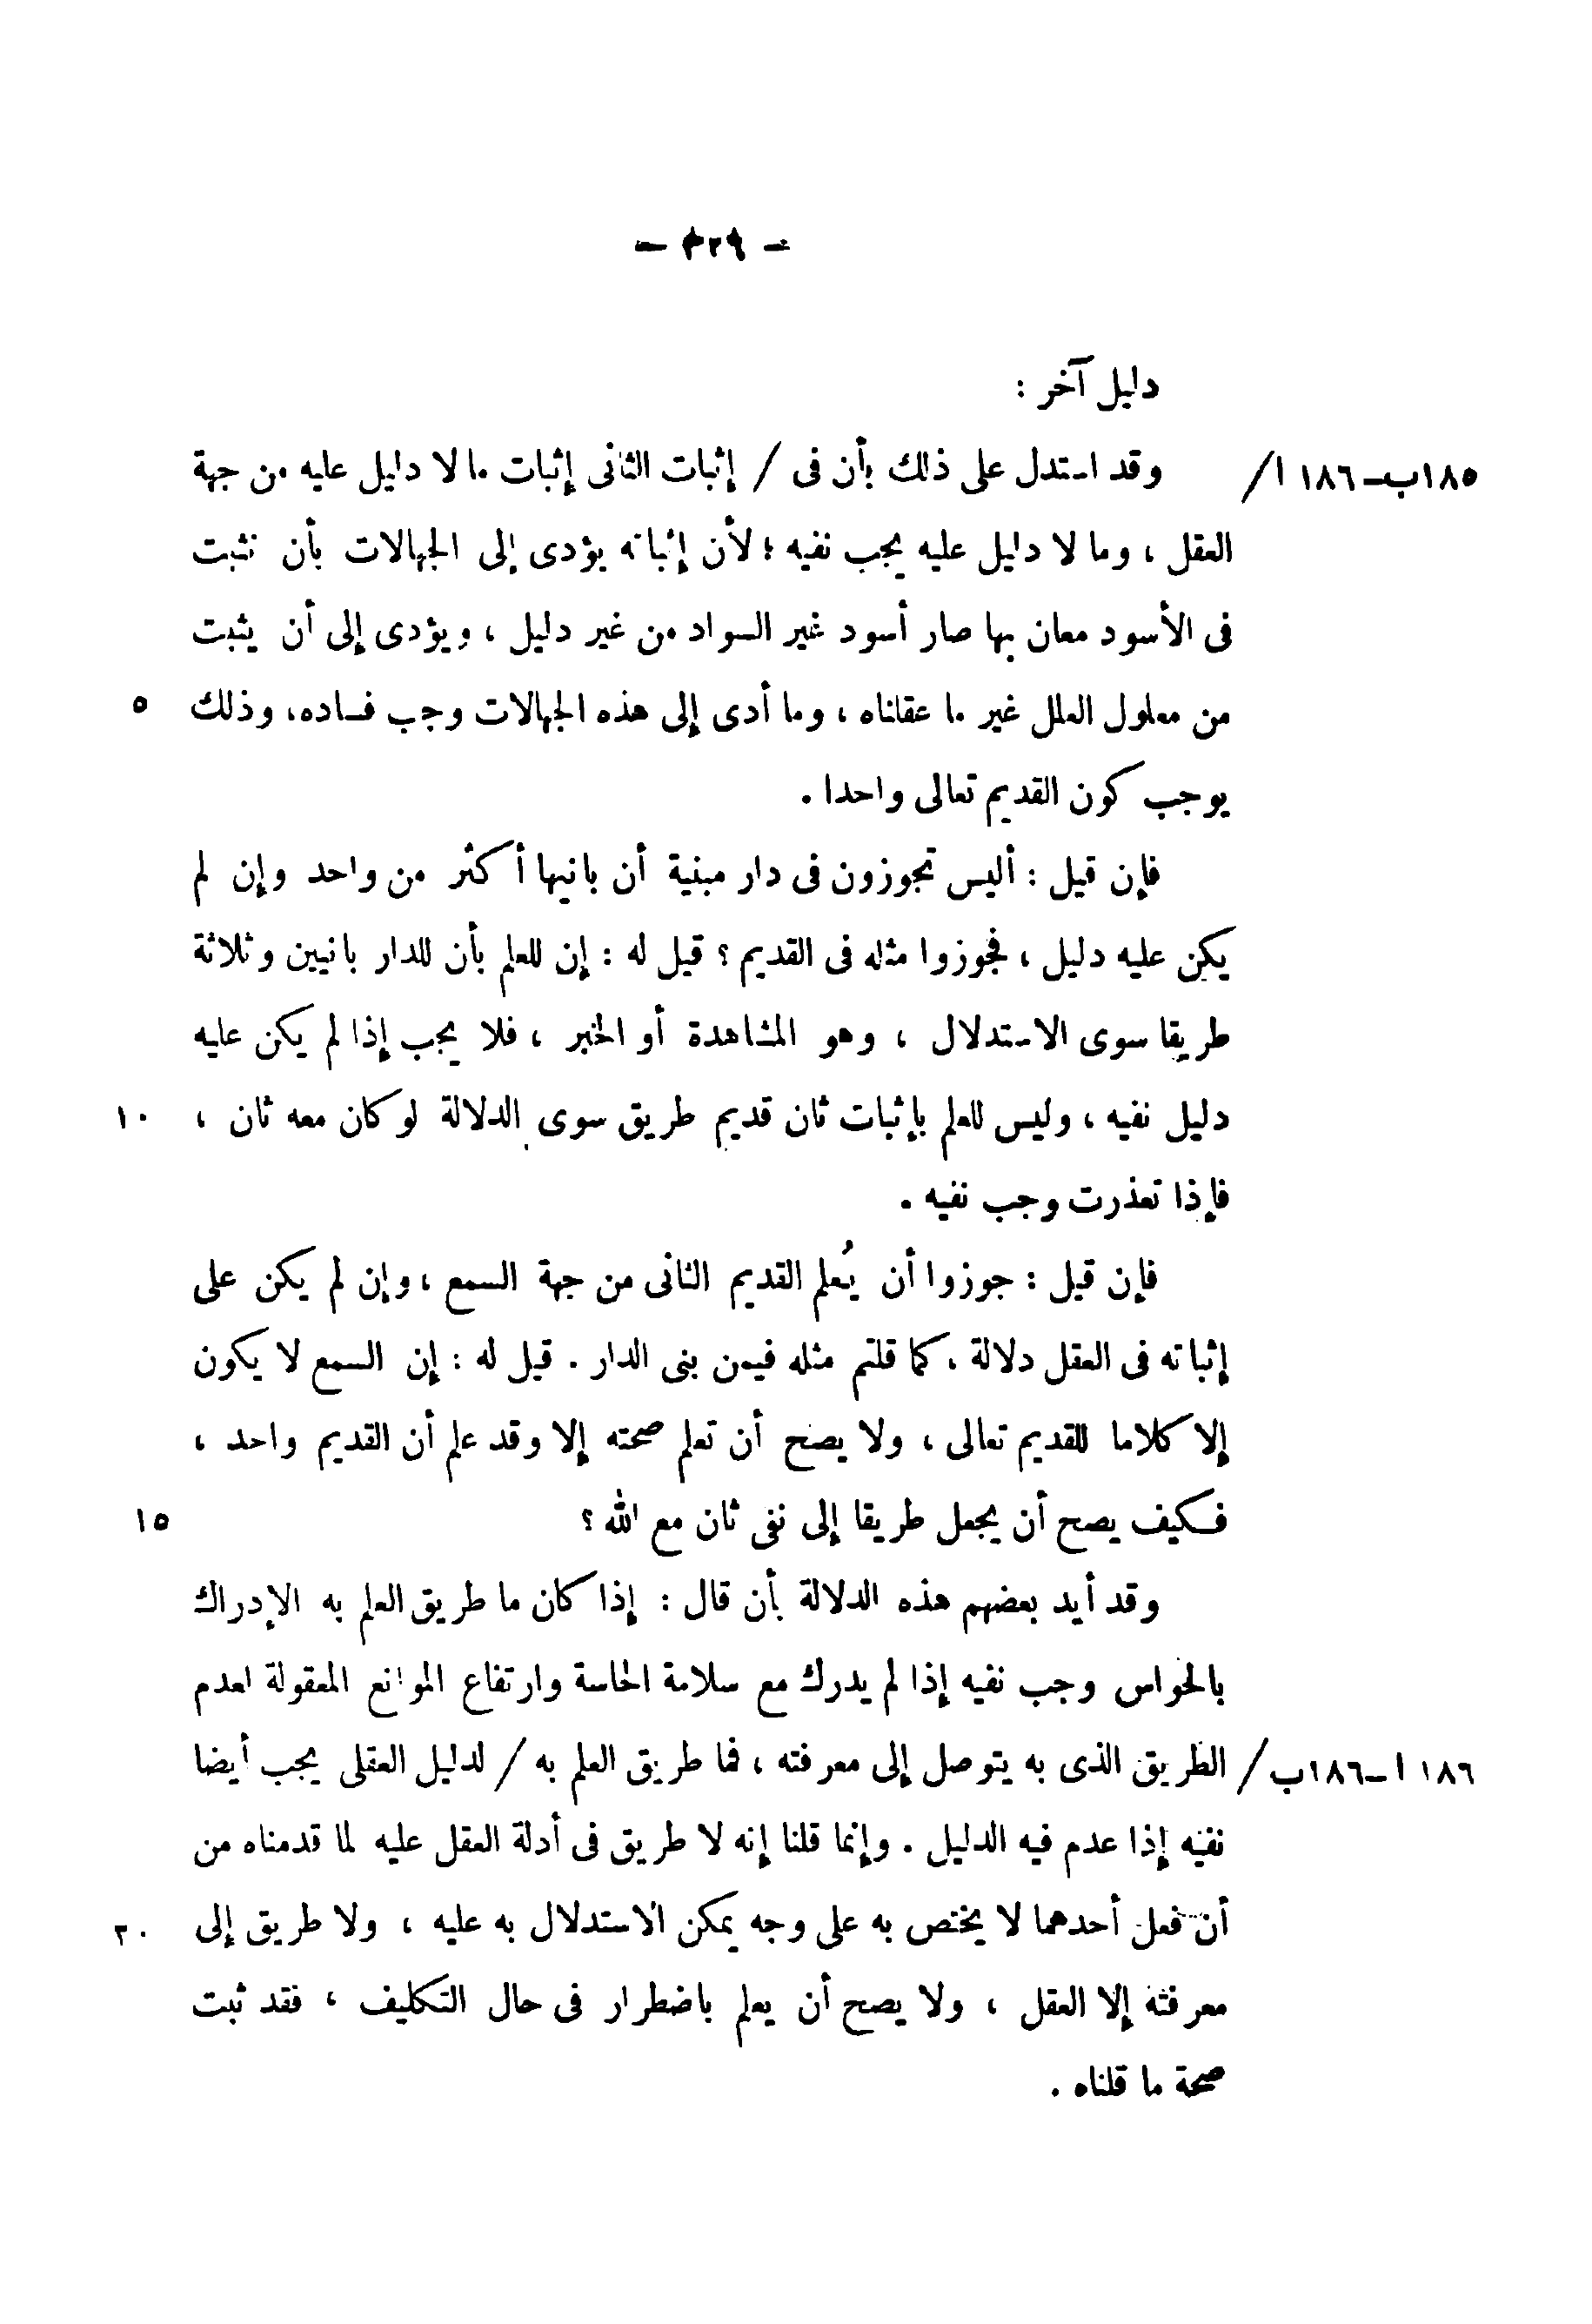 — ٣٢٩ —
دليل آخر :
١٨٥ب–١٨٦ ا/ وقد استدل على ذلك بأن فى / إثبات الثانى إثبات ما لا دليل عليه من جهة
العقل ، وما لا دليل عليه يجب نفيه ؛ لأن إثباته يؤدى إلى الجهالات بأن نثبت
فى الأسود معان بها صار أسود غير السواد من غير دليل ، ويؤدى إلى أن يثبت
من معلول العلل غير ما عقلناه ، وما أدى إلى هذه الجهالات وجب فساده، وذلك ٥
يوجب كون القديم تعالى واحدا .
فإن قيل : أليس تجوزون فى دار مبنية أن بانيها أكثر من واحد وإن لم
يكن عليه دليل ، فجوزوا مثله فى القديم ؟ قيل له : إن للعلم بأن للدار بانيين وثلاثة
طريقا سوى الاستدلال ، وهو المشاهدة أو الخبر ، فلا يجب إذا لم يكن عليه
دليل نفيه ، وليس للعلم بإثبات ثان قديم طريق سوى الدلالة لو كان معه ثان ، ١٠
فإذا تعذرت وجب نفيه .
فإن قيل : جوزوا أن يُعلم القديم الثانى من جهة السمع ، وإن لم يكن على
إثباته فى العقل دلالة ، كما قلتم مثله فيمن بنى الدار . قيل له : إن السمع لا يكون
إلا كلاما للقديم تعالى ، ولا يصح أن تعلم صحته إلا وقد علم أن القديم واحد ،
فكيف يصح أن يجعل طريقا إلى نفى ثان مع الله ؟ ١٥
وقد أيد بعضهم هذه الدلالة بأن قال : إذا كان ما طريق العلم به الإدراك
بالحواس وجب نفيه إذا لم يدرك مع سلامة الحاسة وارتفاع الموانع المعقولة لعدم
١٨٦ ا–١٨٦ب/ الطريق الذى به يتوصل إلى معرفته ، فما طريق العلم به / لدليل العقلى يجب أيضا
نفيه إذا عدم فيه الدليل . وإنما قلنا إنه لا طريق فى أدلة العقل عليه لما قدمناه من
أن فعل أحدهما لا يختص به على وجه يمكن الاستدلال به عليه ، ولا طريق إلى ٢٠
معرفته إلا العقل ، ولا يصح أن يعلم باضطرار فى حال التكليف ، فقد ثبت
صحة ما قلناه .